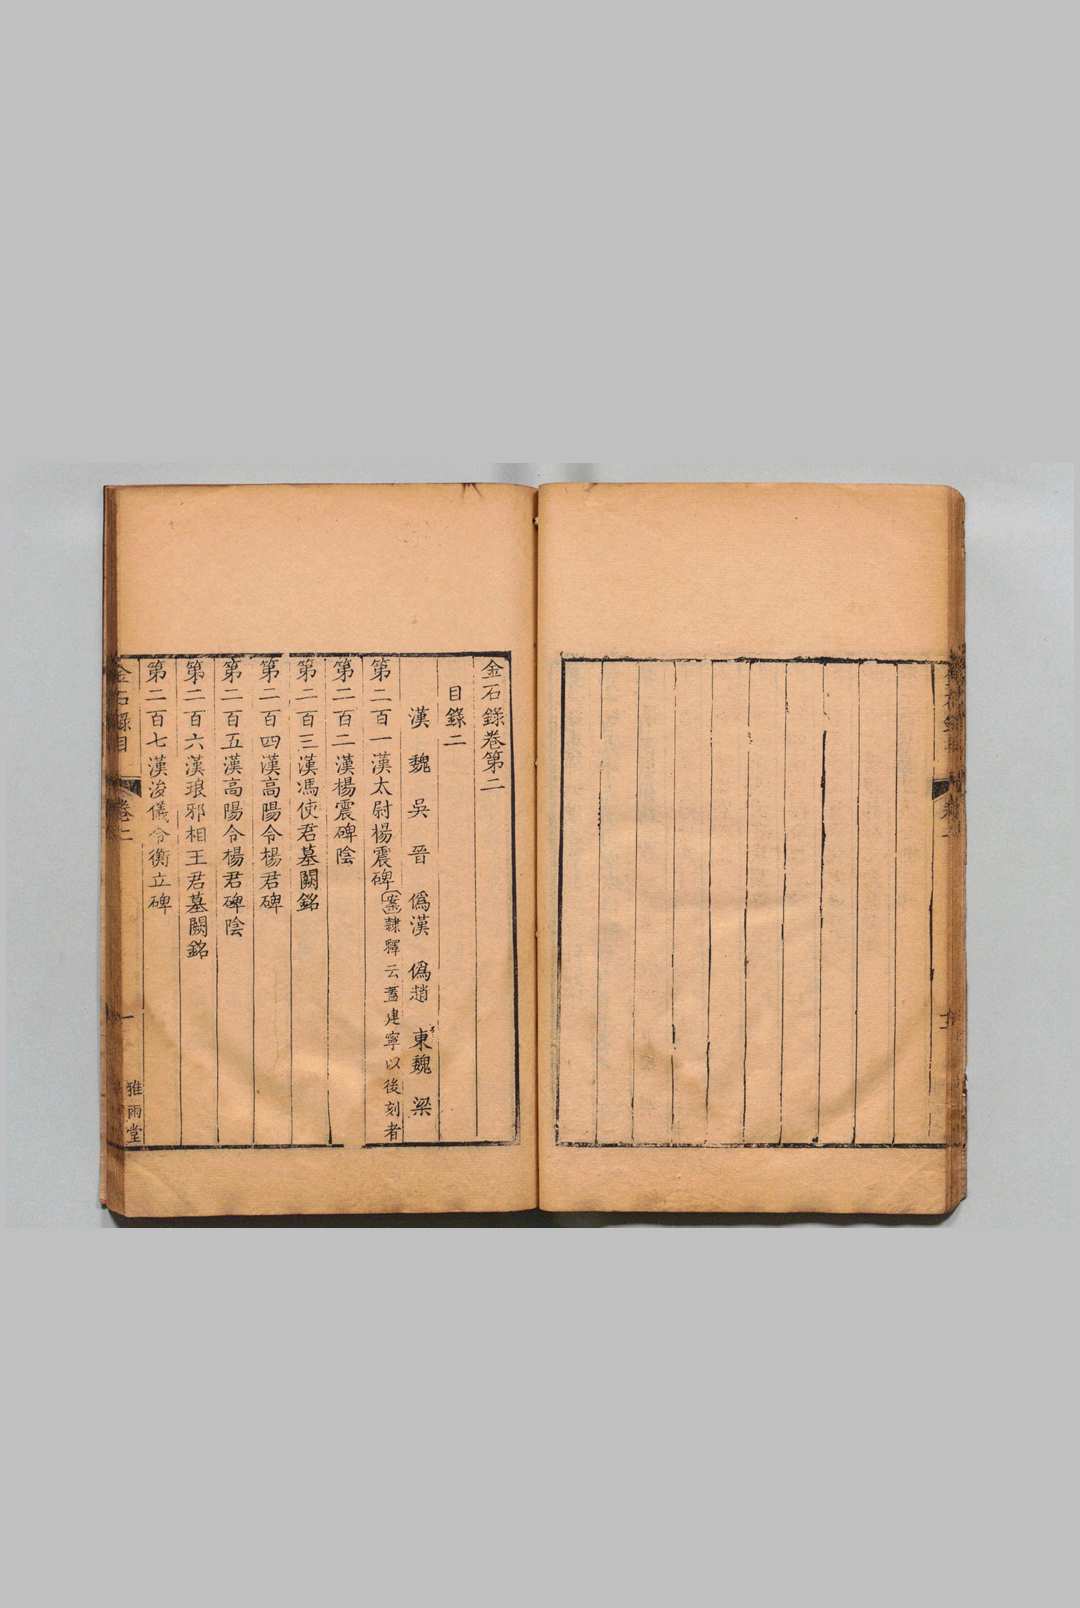 金石錄卷第二
目錄二
漢 魏 吳 晉 僞漢 僞趙 東魏 梁
第二百一漢太尉楊震碑案隸釋云蓋建寧以後刻者
第二百二漢楊震碑陰
第二百三漢馮使君墓闕銘
第二百四漢高陽令楊君碑
第二百五漢高陽令楊君碑陰
第二百六漢琅邪相王君墓闕銘
第二百七漢浚儀令衡立碑
金石錄目 卷二 一 雅雨堂